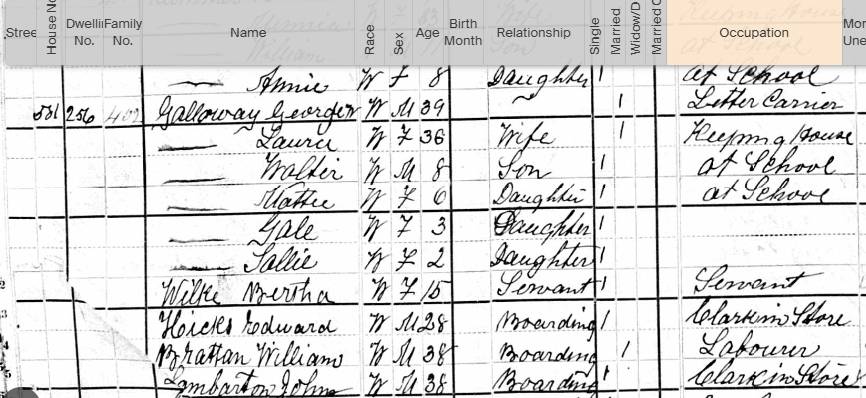 Street House No Dwelling No. Family No. Name Race Sex Age Birth Month Relationship Single Married Widow/D Married C Occupation Mor Une
Annie W F 8 Daughter 1 at School
531 256 Galloway George W W M 39 1 Letter Carrier
Laura W F 36 Wife 1 Keeping House
Walter W M 8 Son 1 at School
Mattie W F 6 Daughter 1 at School
Gale W F 3 Daughter 1
Sallie W F 2 Daughter 1
Wilke Bertha W F 15 Servant 1 Servant
Hicks Edward W M 28 Boarding 1 Clark in Store
Brattan William W M 38 Boarding 1 Labourer
Lambarton John W M 38 Boarding 1 Clark in Store